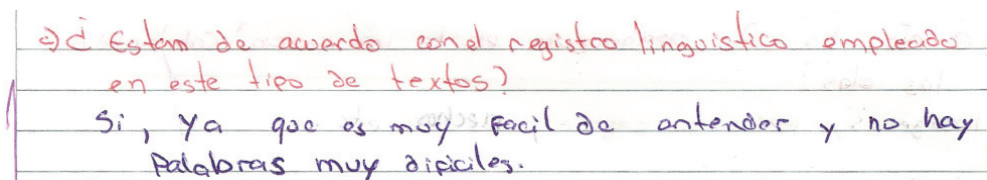 c) ¿ Estan de acuerdo con el registro linguistico empleado
en este tipo de textos?
Si, ya que es muy facil de entender y no hay
Palabras muy dificiles.